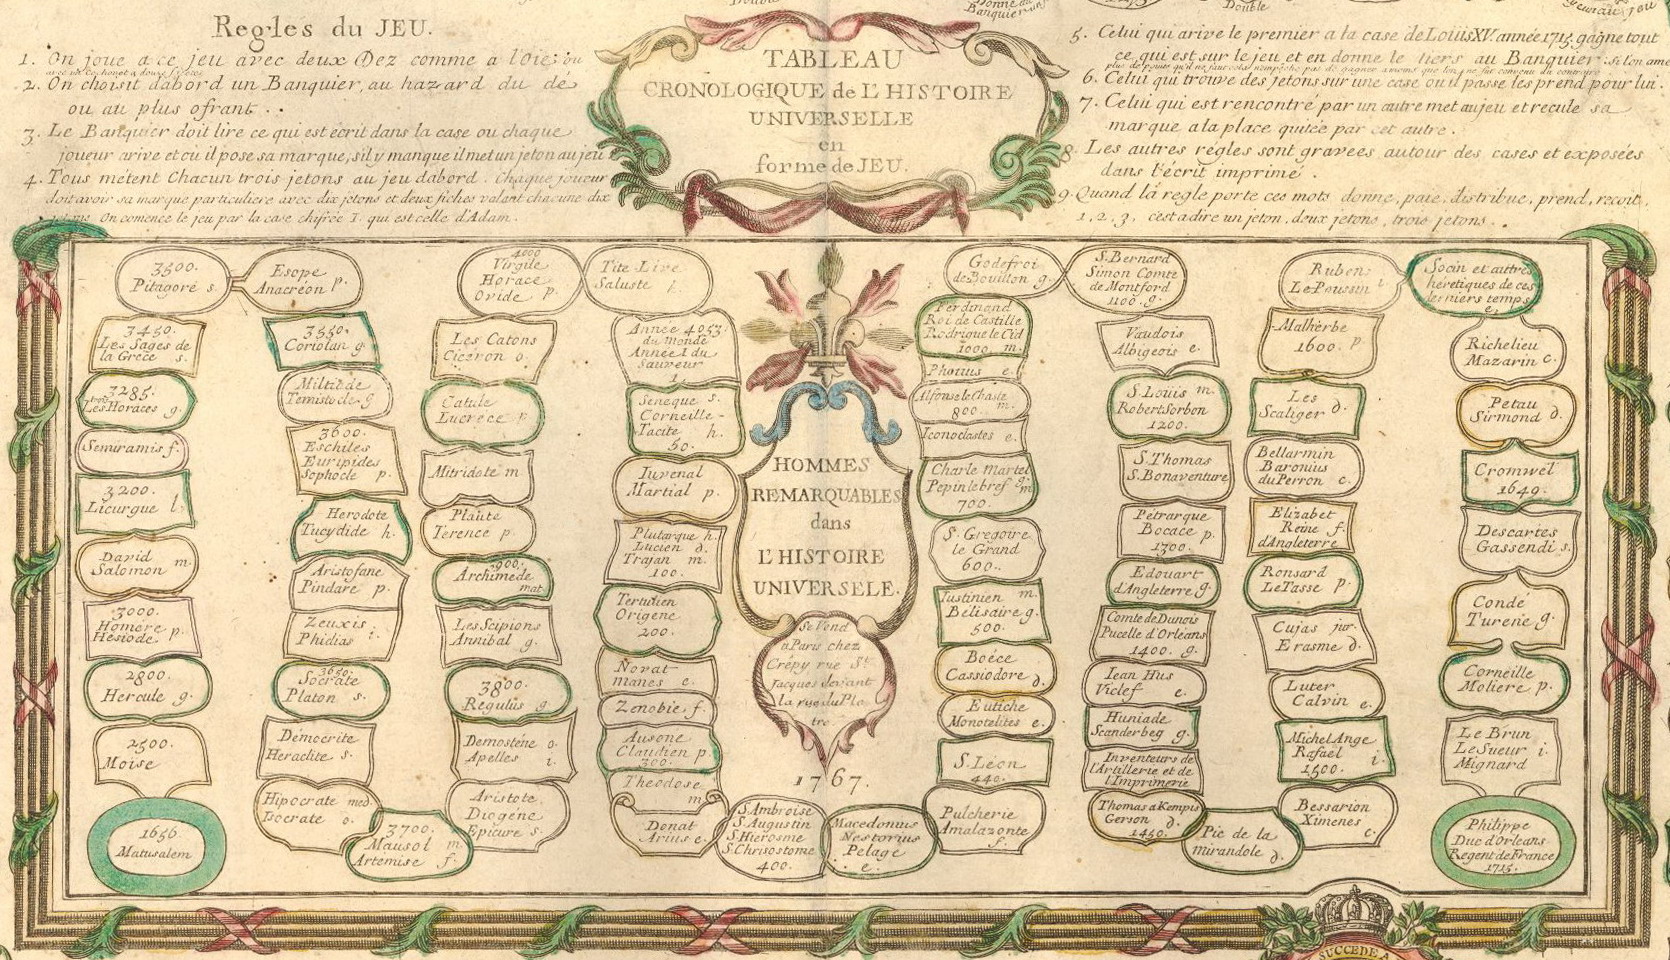 Double
Banquier
Double
Regles du JEU.
1. On joue a ce jeu avec deux Dez comme a l'oie; ou
2. On choisit dabord un Banquier, au hazard du dé
ou au plus ofrant . .
3. Le Banquier doit lire ce qui est écrit dans la case ou chaque
joueur arive et ou il pose sa marque, sil y manque il met un jeton au jeu
4. Tous métent Chacun trois jetons au jeu dabord . Chaque joueur
doit avoir sa marque particuliere avec dix jetons et deux fiches valant chacune dix
jetons On comence le jeu par la case chifrée I. qui est celle d'Adam.
TABLEAU
CRONOLOGIQUE de L'HISTOIRE
UNIVERSELLE
en
forme de JEU.
5. Celui qui arive le premier a la case de Loüis XV. année 1715. gagne tout
ce qui est sur le jeu et en donne le tiers au Banquier.
6. Celui qui trouve des jetons sur une case ou il passe les prend pour lui.
7. Celui qui est rencontré par un autre met au jeu et recule sa
marque a la place quitée par cet autre .
8. Les autres règles sont gravées autour des cases et exposées
dans l'écrit imprimé .
9. Quand la regle porte ces mots donne, paie, distribue, prend, reçoit,
1, 2, 3, c'est a dire un jeton, deux jetons, trois jetons .
3500.
Pitagore s.
3450.
Les Sages de
la Grece s.
3285.
Les Horaces g.
Semiramis f.
3200.
Licurgue l.
David
Salomon m.
3000.
Homere
Hesiode p.
2800.
Hercule g.
2500.
Moise
1656.
Matusalem
Esope
Anacréon p.
3550.
Coriolan g.
Miltilde
Temistocle g
3600.
Eschiles
Euripides
Sophocle p.
Herodote
Tucydide h.
Aristofane
Pindare p.
Zeuxis
Phidias i.
3650.
Socrate
Platon s.
Démocrite
Heraclite s.
Hipocrate med.
Isocrate o.
3700.
Mausol m.
Artemise f.
4000
Virgile
Horace
Ovide p.
Les Catons
Ciceron o.
Catule
Lucrece p.
Mitridate m
Plaute
Terence p.
3900.
Archimede
mat
Les Scipions
Annibal g.
3800.
Regulus g.
Demosténe o.
Apelles i.
Aristote
Diogène
Epicure s.
Tite Live
Saluste
Année 4053.
du Monde
Année 1 du
Sauveur
1.
Seneque s.
Corneille-
Tacite h.
50.
Iuvenal
Martial p.
Plutarque h.
Lucien d.
Trajan m.
100.
Tertulien
Origene
200.
Novat-
manes e.
Zenobie f.
Ausone
Claudien p
300.
Theodose
m
Donat
Arius e.
S. Ambroise
S. Augustin
S. Hierosme
S. Chrisostome
400.
HOMMES
REMARQUABLES
dans
L'HISTOIRE
UNIVERSELE.
Se Vend
a Paris chez
Crépy rue St.
Jacques devant
la rue du Pla
tre.
1767.
Macedonius
Nestorius
Pelage
e.
Godefroi
de Bouillon g.
Ferdinand
Roi de Castille
Rodrigue le Cid
1000. m.
Photius e.
Alfonse le Chaste
800. m.
Iconoclastes e.
Charle Martel
Pepin le bref g. m
700.
S. Gregoire
le Grand
600.
Iustinien m.
Bélisaire g.
500.
Boéce
Cassiodore d.
Eutiche
Monotelites e.
S. Léon
440.
Pulcherie
Amalazonte
f.
S. Bernard
Simon Comte
de Montford
1100. g.
Vaudois
Albigeois e.
S. Loüis m.
Robert Sorbon
1200.
S. Thomas
S. Bonaventure
Pétrarque
Bocace p.
1300.
Edouart
d'Angleterre g.
Comte de Dunois
Pucelle d'Orleans
1400. g.
Iean Hus
Viclef e.
Huniade
Scanderbeg g.
Inventeurs de
l'Artillerie et de
l'Imprimerie
Thomas a Kempis
Gerson d.
1450.
Pic de la
mirandole d.
Rubens
Le Poussin i
Malherbe
1600. p.
Les
Scaliger d.
Bellarmin
Baronius
du Perron c.
Elizabet
Reine f.
d'Angleterre
Ronsard
Le Tasse p.
Cujas jur.
Erasme d.
Luter
Calvin e.
Michel Ange
Rafael i.
1500.
Bessarion
Ximenes c.
Socin et autres
hérétiques de ces
derniers temps
e.
Richelieu
Mazarin c.
Petau
Sirmond d.
Cromwel
1649.
Descartes
Gassendi s.
Condé
Turenne g.
Corneille
Moliere p.
Le Brun
Le Sueur i.
Mignard
Philippe
Duc d'Orleans
Regent de France
1715.
SUCCEDE A